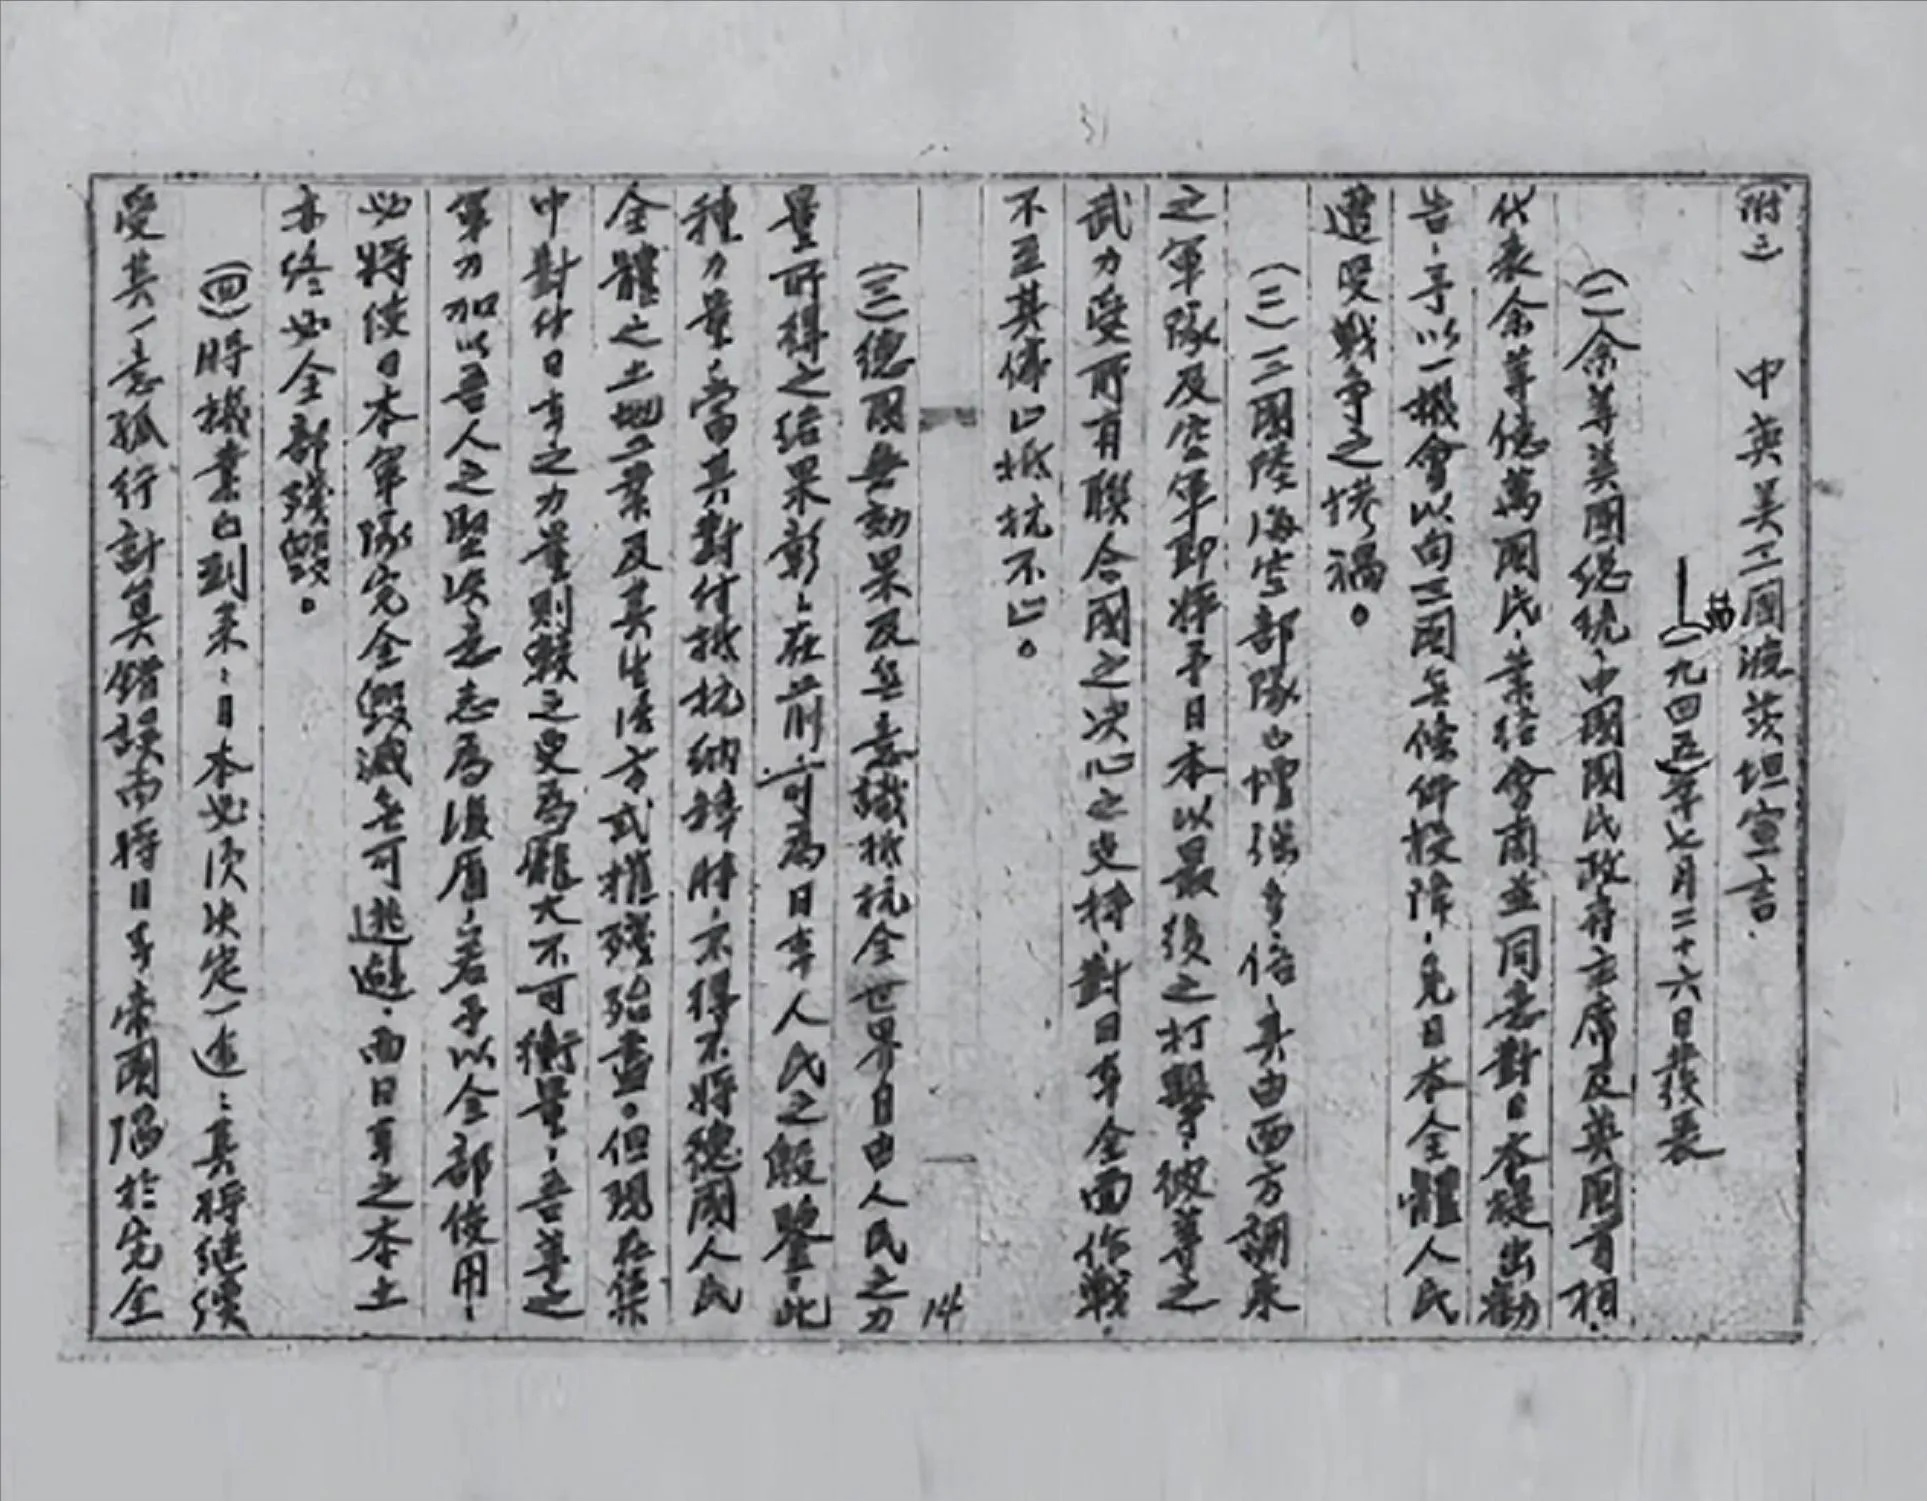 (附二) 中英美三國波茨坦宣言、
(一九四五年七月二十六日發表
(一)余等美國總統、中國國民政府主席及英國首相、
代表余等億萬國民、業經會商並同意對日本提出勸
告、予以一機會以向三國無條件投降、免日本全體人民
遭受戰爭之慘禍。
(二)三國陸海空部隊已增強多倍、其由西方調來
之軍隊及空軍即將予日本以最後之打擊、彼等之
武力受所有聯合國之決心之支持、對日本全面作戰、
不至其停止抵抗不止。
14
(三)德國無効果及無意識抵抗全世界自由人民之力
量所得之結果彰彰在前可為日本人民之殷鑒、此
種力量、當其對付抵抗納粹時、不得不將德國人民
全體之土地工業及其生活方式摧殘殆盡。但現在集
中對付日本之力量則較之更為龐大不可衡量、吾等之
軍力加以吾人之堅決意志為後盾、若予以全部使用、
必將使日本軍隊完全毀滅無可逃避、而日本之本土
亦終必全部殘毀。
(四)時機業已到來、日本必須決定一途、其將繼續
受其一意孤行計算錯誤而將日本帝國陷於完全